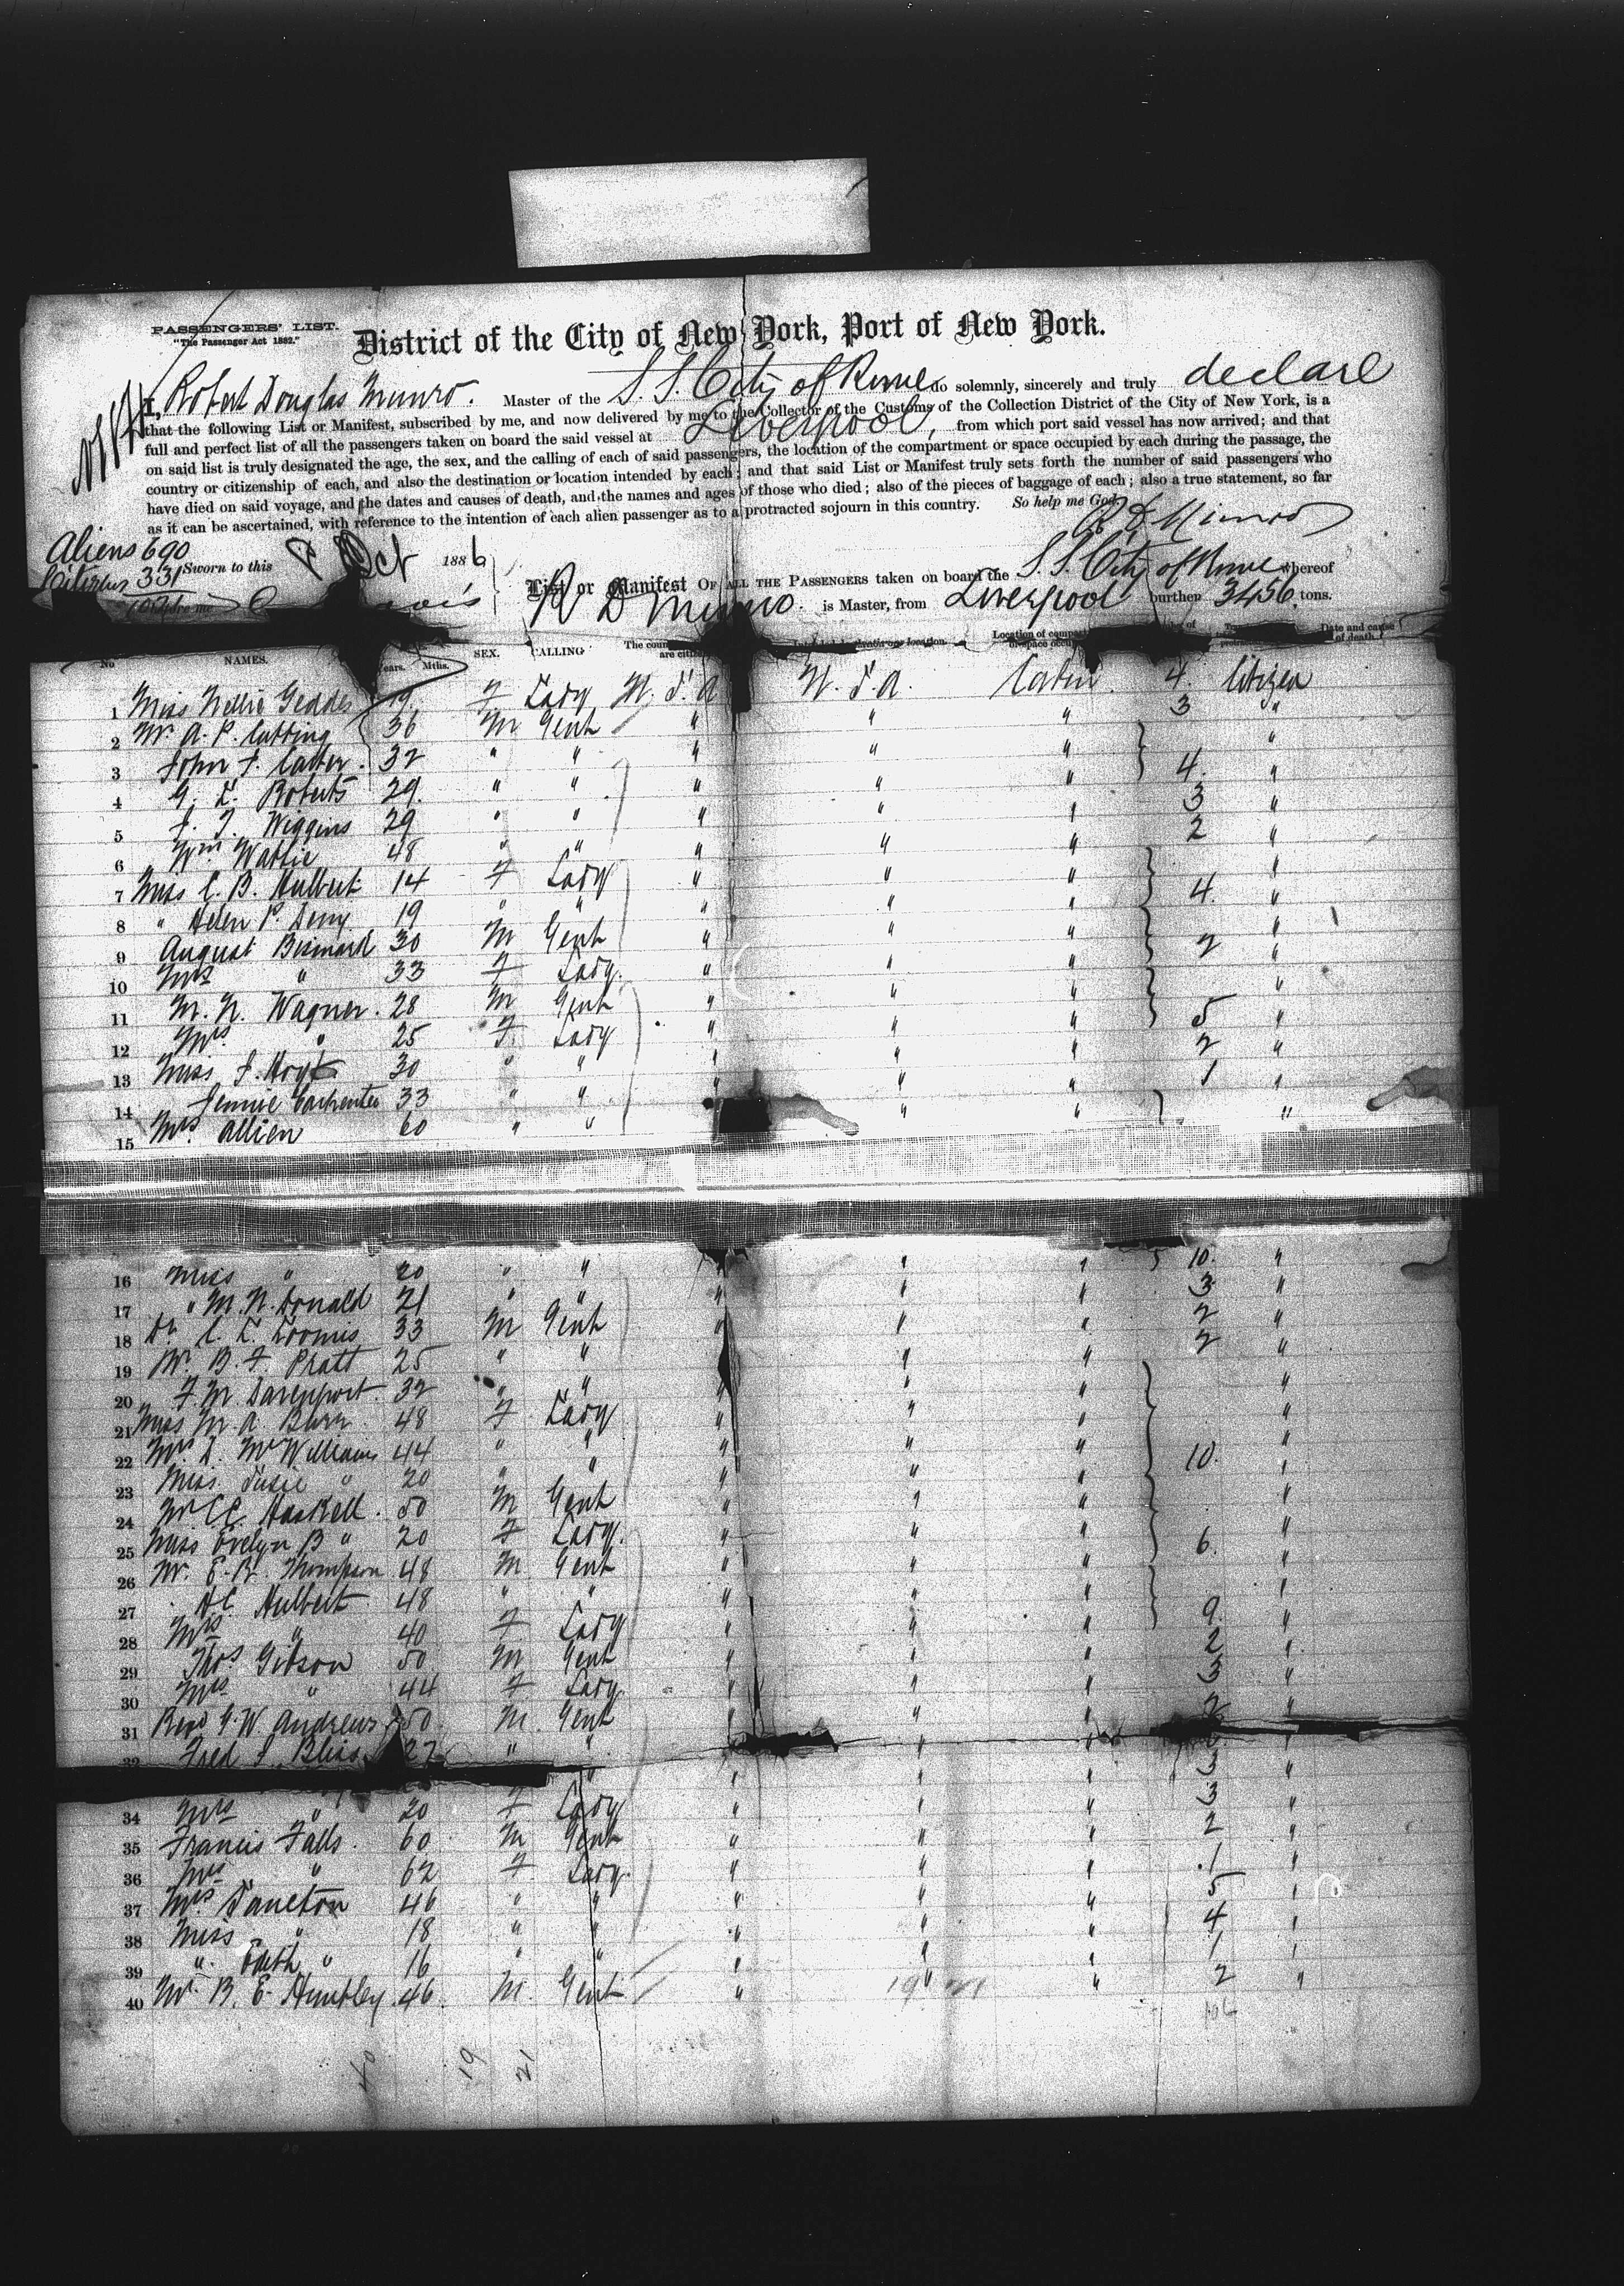 PASSENGERS' LIST.
"The Passenger Act 1882."
District of the City of New York, Port of New York.
I, Robert Douglas Munro. Master of the S. S. City of Rome do solemnly, sincerely and truly declare
that the following List or Manifest, subscribed by me, and now delivered by me to the Collector of the Customs of the Collection District of the City of New York, is a
full and perfect list of all the passengers taken on board the said vessel at Liverpool, from which port said vessel has now arrived; and that
on said list is truly designated the age, the sex, and the calling of each of said passengers, the location of the compartment or space occupied by each during the passage, the
country or citizenship of each, and also the destination or location intended by each; and that said List or Manifest truly sets forth the number of said passengers who
have died on said voyage, and the dates and causes of death, and the names and ages of those who died; also of the pieces of baggage of each; also a true statement, so far
as it can be ascertained, with reference to the intention of each alien passenger as to a protracted sojourn in this country. So help me God.
R D Munro
Aliens 690
Citizens 331 Sworn to this 8 Oct 1886
List or Manifest OF ALL THE PASSENGERS taken on board the S. S. City of Rome whereof
R D Munro. is Master, from Liverpool burthen 3456 tons.
No NAMES. Years. Mths. SEX. CALLING Date and cause of death.
1 Miss Nellie Geddes 19. F Lady U. S. A U. S. A. Cabin 4. Citizen
2 Mr. A. P. Cutting 36 M Gent " " " 3 "
3 John F. Carter. 32 " " " " " "
4 G. L. Roberts 29. " " " " " 4. "
5 J. T. Wiggins 29 " " " " " 3 "
6 Wm Wattie 48 " " " " " 2 "
7 Miss C. B. Hulbert 14 F Lady " " " "
8 " Helen P. Demy 19 " " " " " 4. "
9 August Bismark 30 M Gent " " " "
10 Mrs " 33 F Lady. " " " 2 "
11 M. N. Wagner. 28 M Gent " " " "
12 Mrs " 25 F Lady " " " 5 "
13 Miss J. Hoyt 30 " " " " " 2 "
14 Jennie Carpenter 33 " " " " " 1 "
15 Mrs. Allien 60 " " " " "
16 Miss " 20 " " " " 10. "
17 " M. N. Donald 21 " " " " " 3 "
18 Dr. C. L. Loomis 33 M Gent " " " 2 "
19 Mr. B. F. Pratt 25 " " " " " 2 "
20 F. M. Davenport 32 " " " " " "
21 Miss M. A. 48 F Lady " " " "
22 Mrs. L. McWilliams 44 " " " " " "
23 Miss. Susie " 20 " " " " " 10. "
24 Mr C. C. Haskell. 50 M Gent " " " "
25 Miss Evelyn B " 20 F Lady. " " " "
26 Mr. E. R. Thompson 48 M Gent " " " 6. "
27 H C. Hulbert 48 " " " " " "
28 Mrs " 40 F Lady " " " 9. "
29 Thos. Gibson 50 M Gent " " " 2 "
30 Mrs " 44 F Lady " " " 3 "
31 Revd G. W. Andrews 50. M. Gent " " " 2 "
32 Fred J. Bliss 27 " " " "
34 Mrs " 20 F Lady " " " 3 "
35 Francis Falls. 60 M Gent " " " 2 "
36 Mrs " 62 F Lady. " " " 1 "
37 Mrs. 46 " " " " " 5 "
38 Miss " 18 " " " " " 4 "
39 " Edith " 16 " " " " " 1 "
40 Mr. B. E. 46. M. Gent " " " 2 "
19 21
40 19 21